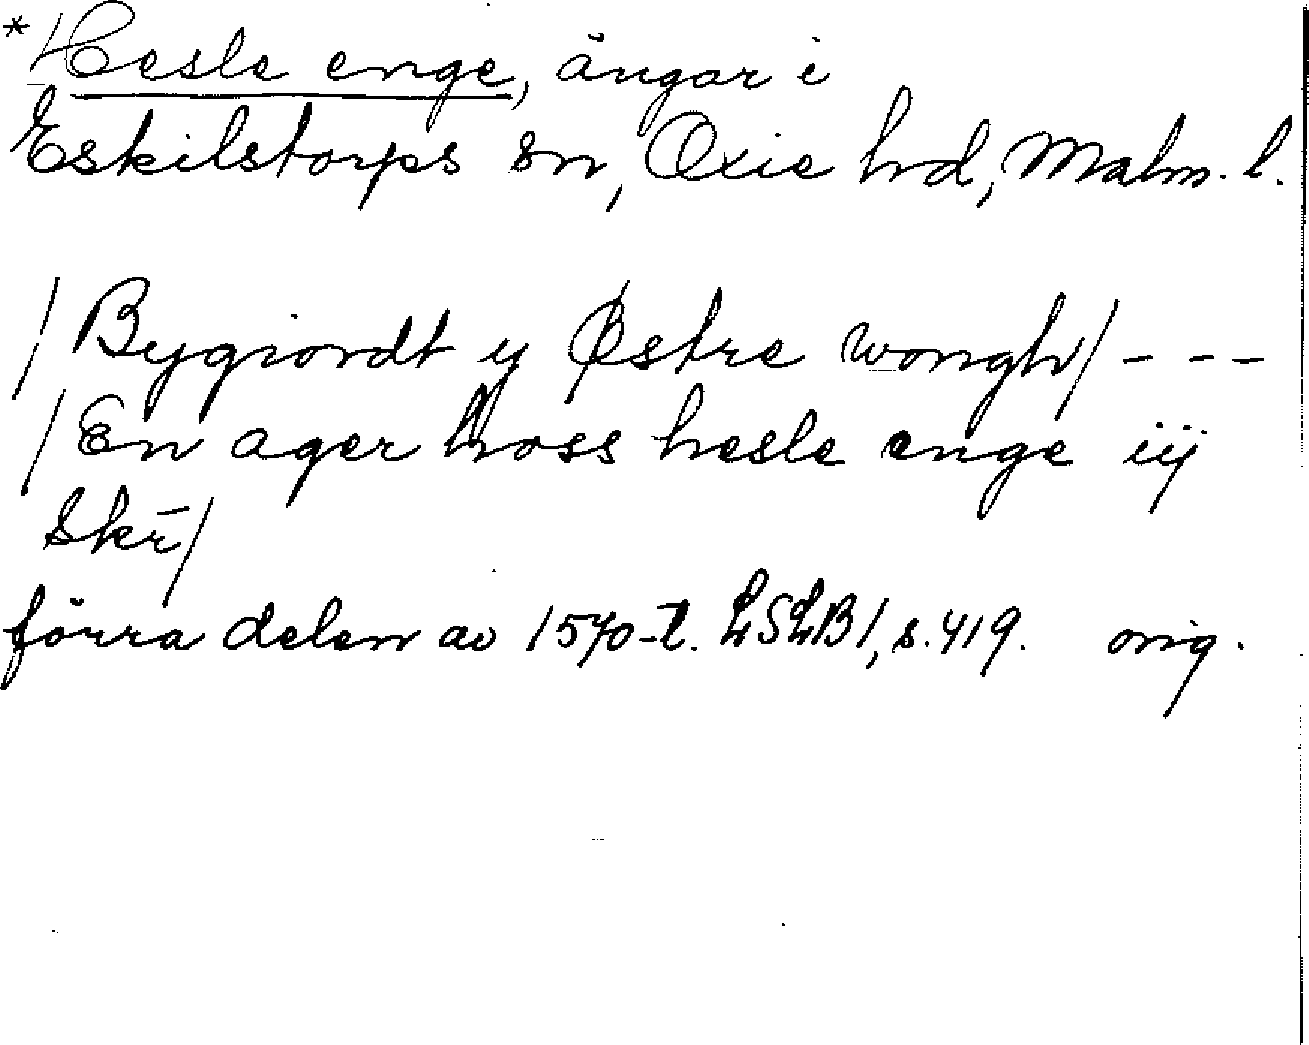 *Hesle enge, ängar i
Eskilstorps sn, Oxie hd, Malm. l.
/Bygiordt y Østre wongh/ - - -
/En ager hoss hesle enge iij
skr̄/
förra delen av 1570-t. LSLB1, s. 419. orig.